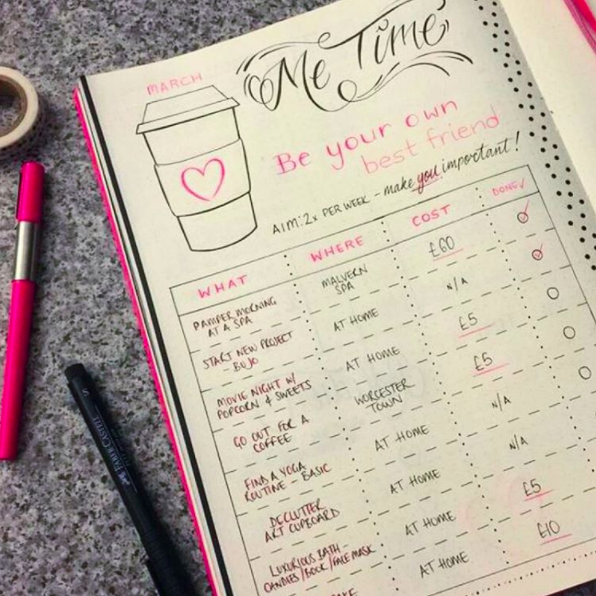 MARCH
Me Time
Be your own
best friend
AIM: 2x PER WEEK - make you important!
WHAT WHERE COST DONE✓
PAMPER MORNING
AT A SPA
MALVERN
SPA
£60
START NEW PROJECT
- BUJO
AT HOME
N/A
MOVIE NIGHT W/
POPCORN & SWEETS
AT HOME
£5
GO OUT FOR A
COFFEE
WORCESTER
TOWN
£5
FIND A YOGA
ROUTINE - BASIC
AT HOME
N/A
DECLUTTER
ART CUPBOARD
AT HOME
N/A
LUXURIOUS BATH -
CANDLES/BOOK/FACE MASK
AT HOME
£5
AT HOME
£10